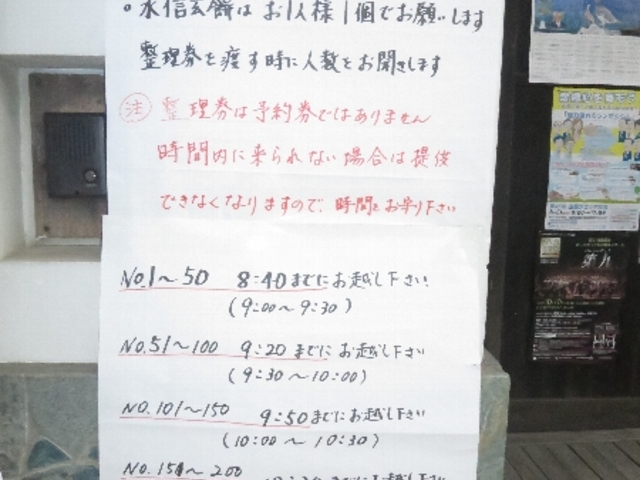 。水信玄餅は お1人様 1個でお願いします
整理券を渡す時に人数をお聞きします
注 整理券は予約券ではありません
時間内に来られない場合は提供
できなくなりますので、時間をお守り下さい
No.1〜50 8:40までにお越し下さい
(9:00〜9:30)
No.51〜100 9:20までにお越し下さい
(9:30〜10:00)
No.101〜150 9:50までにお越し下さい
(10:00〜10:30)
No.151〜200